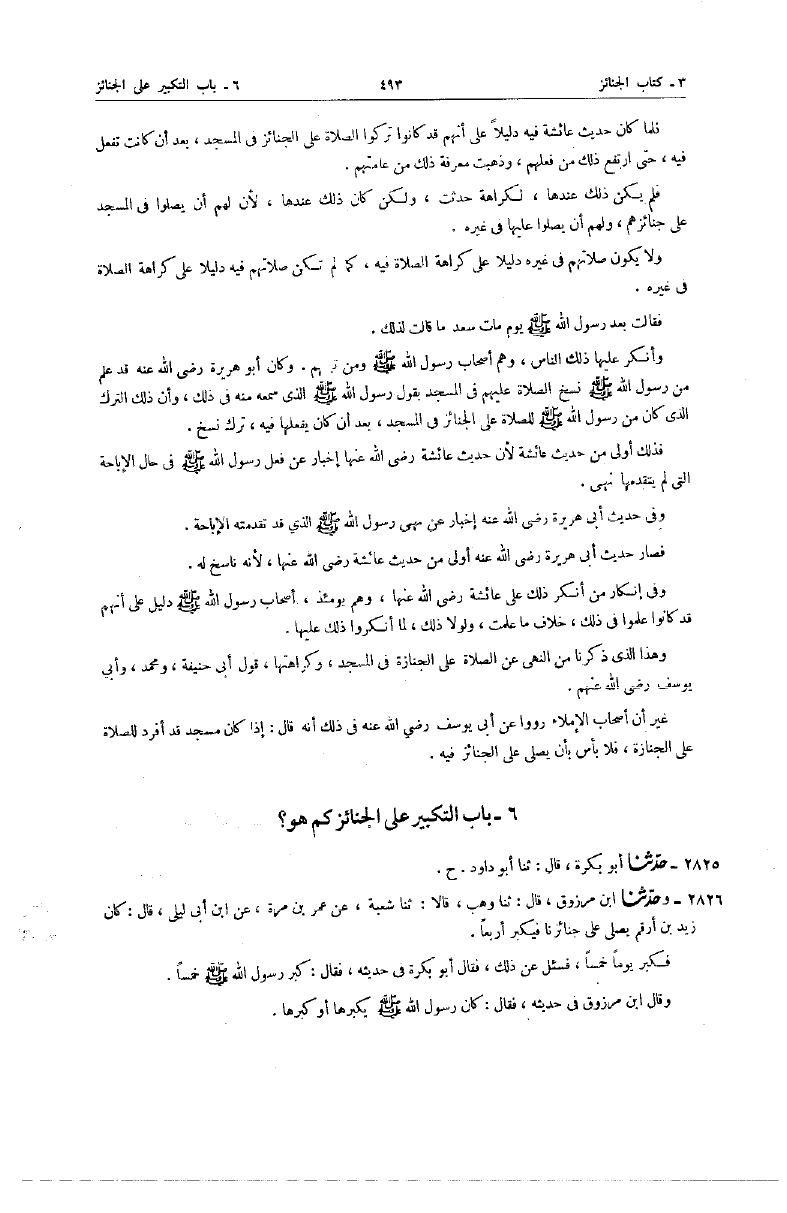 ٣ ـ كتاب الجنائز ٤٩٣ ٦ ـ باب التكبير على الجنائز
فلما كان حديث عائشة فيه دليلاً على أنهم قد كانوا تركوا الصلاة على الجنائز فى المسجد ، بعد أن كانت تفعل
فيه ، حتى ارتفع ذلك من فعلهم ، وذهبت معرفة ذلك من عامتهم .
فلم يكن ذلك عندها ، لكراهة حدثت ، ولكن كان ذلك عندها ، لأن لهم أن يصلوا فى المسجد
على جنائزهم ، ولهم أن يصلوا عليها فى غيره .
ولا يكون صلاتهم فى غيره دليلا على كراهة الصلاة فيه ، كما لم تكن صلاتهم فيه دليلا على كراهة الصلاة
فى غيره .
فقالت بعد رسول الله ﷺ يوم مات سعد ما قالت لذلك .
وأنكر عليها ذلك الناس ، وهم أصحاب رسول الله ﷺ ومن . وكان أبو هريرة رضى الله عنه قد علم
من رسول الله ﷺ نسخ الصلاة عليهم فى المسجد بقول رسول الله ﷺ الذى سمعه منه فى ذلك ، وأن ذلك الترك
الذى كان من رسول الله ﷺ للصلاة على الجنائز فى المسجد ، بعد أن كان يفعلها فيه ، ترك نسخ .
فذلك أولى من حديث عائشة لأن حديث عائشة رضى الله عنها إخبار عن فعل رسول الله ﷺ فى حال الإباحة
التى لم يتقدمها نهى .
وفى حديث أبى هريرة رضى الله عنه إخبار عن نهى رسول الله ﷺ الذي قد تقدمته الإباحة .
فصار حديث أبى هريرة رضى الله عنه أولى من حديث عائشة رضى الله عنها ، لأنه ناسخ له .
وفى إنكار من أنكر ذلك على عائشة رضى الله عنها ، وهم يومئذ ، أصحاب رسول الله ﷺ دليل على أنهم
قد كانوا علموا فى ذلك ، خلاف ما علمت ، ولولا ذلك ، لما أنكروا ذلك عليها .
وهذا الذى ذكرنا من النهى عن الصلاة على الجنازة فى المسجد ، وكراهتها ، قول أبى حنيفة ، ومحمد ، وأبي
يوسف رضى الله عنهم .
غير أن أصحاب الإملاء رووا عن أبى يوسف رضي الله عنه فى ذلك أنه قال : إذا كان مسجد قد أفرد للصلاة
على الجنازة ، فلا بأس بأن يصلى على الجنائز فيه .
٦ ـ باب التكبير على الجنائز كم هو؟
٢٨٢٥ ـ حدّثنا أبو بكرة ، قال : ثنا أبو داود . ح .
٢٨٢٦ ـ وحدّثنا ابن مرزوق ، قال : ثنا وهب ، قالا : ثنا شعبة ، عن عمر بن مرة ، عن ابن أبى ليلى ، قال : كان
زيد بن أرقم يصلى على جنائزنا فيكبر أربعاً .
فكبر يوماً خمساً ، فسئل عن ذلك ، فقال أبو بكرة فى حديثه ، فقال : كبر رسول الله ﷺ خمساً .
وقال ابن مرزوق فى حديثه ، فقال : كان رسول الله ﷺ يكبرها أو كبرها .